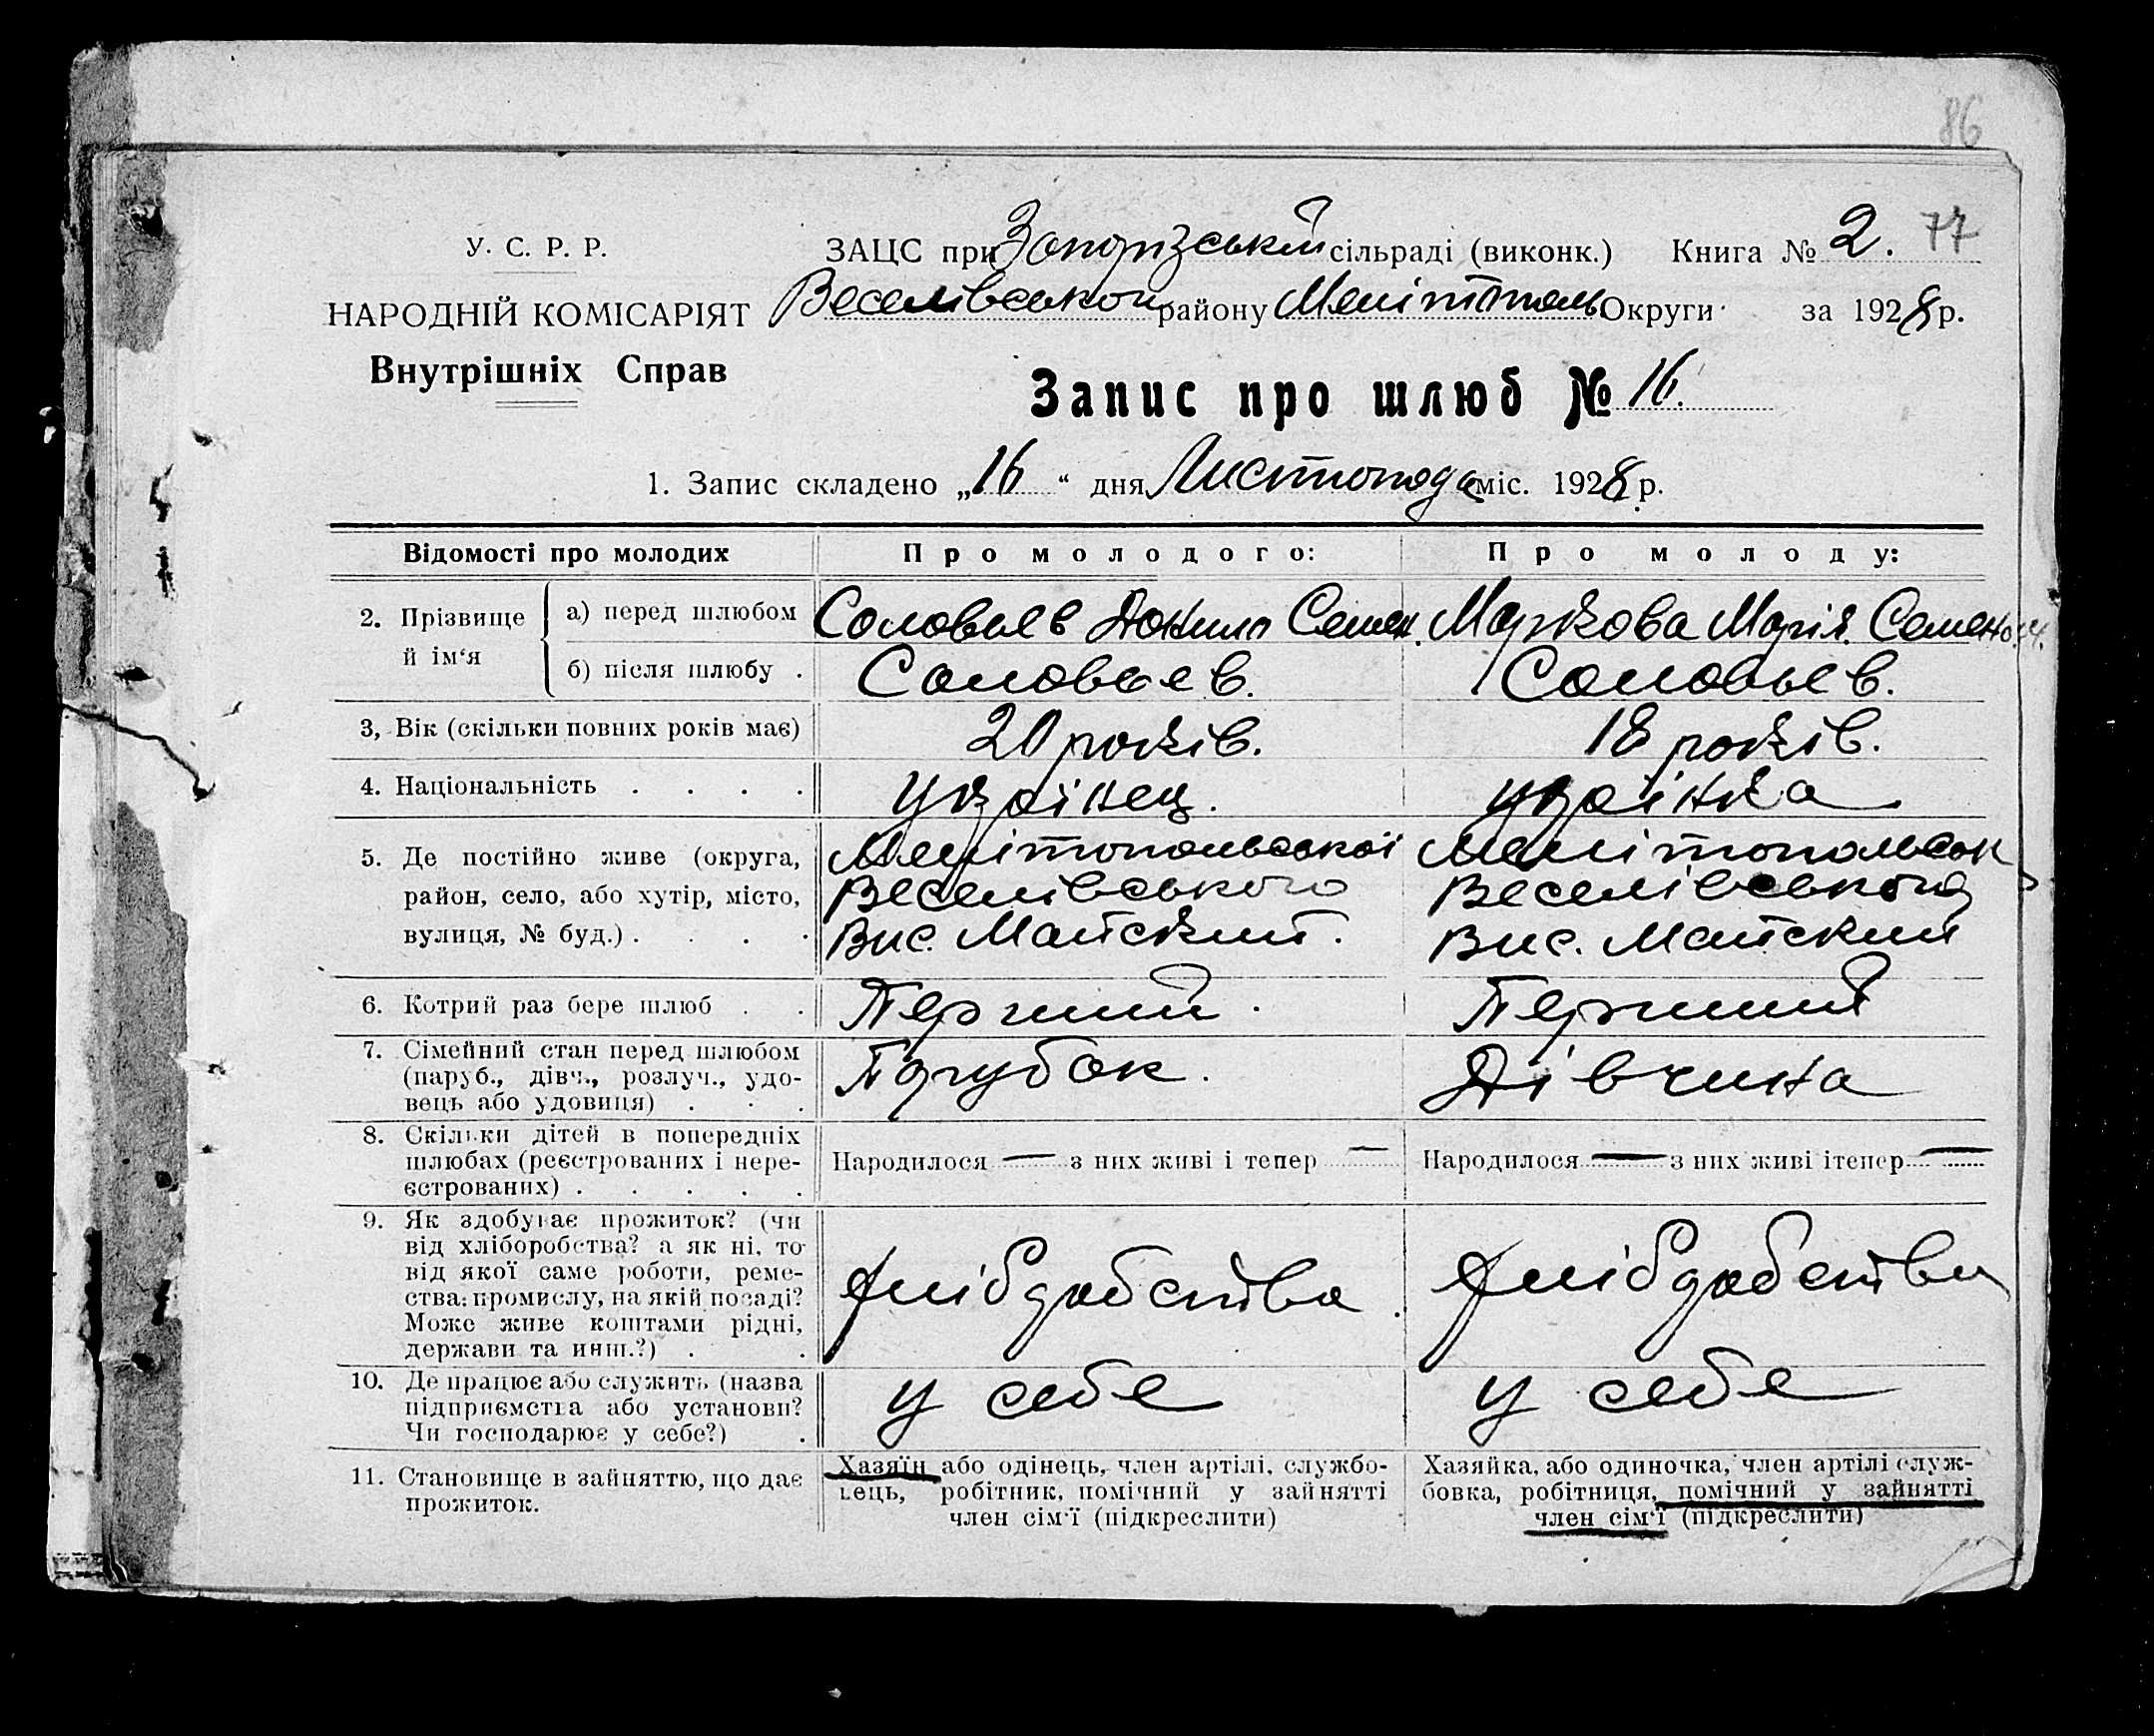 86
У. С. Р. Р.
ЗАЦС при Запорізській сільраді (виконк.) Книга № 2. 77
НАРОДНІЙ КОМІСАРІЯТ
Веселівського району Мелітополь Округи за 1928 р.
Внутрішніх Справ
Запис про шлюб № 16.
1. Запис складено „16“ дня Листопада міс. 1928 р.
Відомості про молодих
Про молодого:
Про молоду:
2. Прізвище й ім‘я
а) перед шлюбом
Соловьев Данило Семен.
Маркова Марія Семенов.
б) після шлюбу .
Соловьев.
Соловьев.
3, Вік (скільки повних років має)
20 років.
18 років.
4. Національність . . . .
українец.
українка
5. Де постійно живе (округа,
район, село, або хутір, місто,
вулиця, № буд.) . . . .
Мелітопольської
Веселівського
Вис. Майський.
Мелітопольськ
Веселівського
Вис. Майский
6. Котрий раз бере шлюб . .
Перший.
Перший
7. Сімейний стан перед шлюбом
(паруб., дівч., розлуч., удо-
вець або удовиця) . . .
Парубок.
Дівчина
8. Скільки дітей в попередніх
шлюбах (реєстрованих і нере-
єстрованих) . . . . .
Народилося — з них живі і тепер —
Народилося — з них живі ітепер —
9. Як здобуває прожиток? (чи
від хліборобства? а як ні, то
від якої саме роботи, реме-
ства: промислу, на якій посаді?
Може живе коштами рідні,
держави та инш.?) . .
у себе
у себе
10. Де працює або служить (назва
підприємства або установи?
Чи господарює у себе?) .
11. Становище в зайняттю, що дає
прожиток.
Хазяїн або одінець, член артілі, службо-
вець, робітник, помічний у зайнятті
член сім‘ї (підкреслити)
Хазяйка, або одиночка, член артілі служ-
бовка, робітниця, помічний у зайнятті
член сім‘ї (підкреслити)